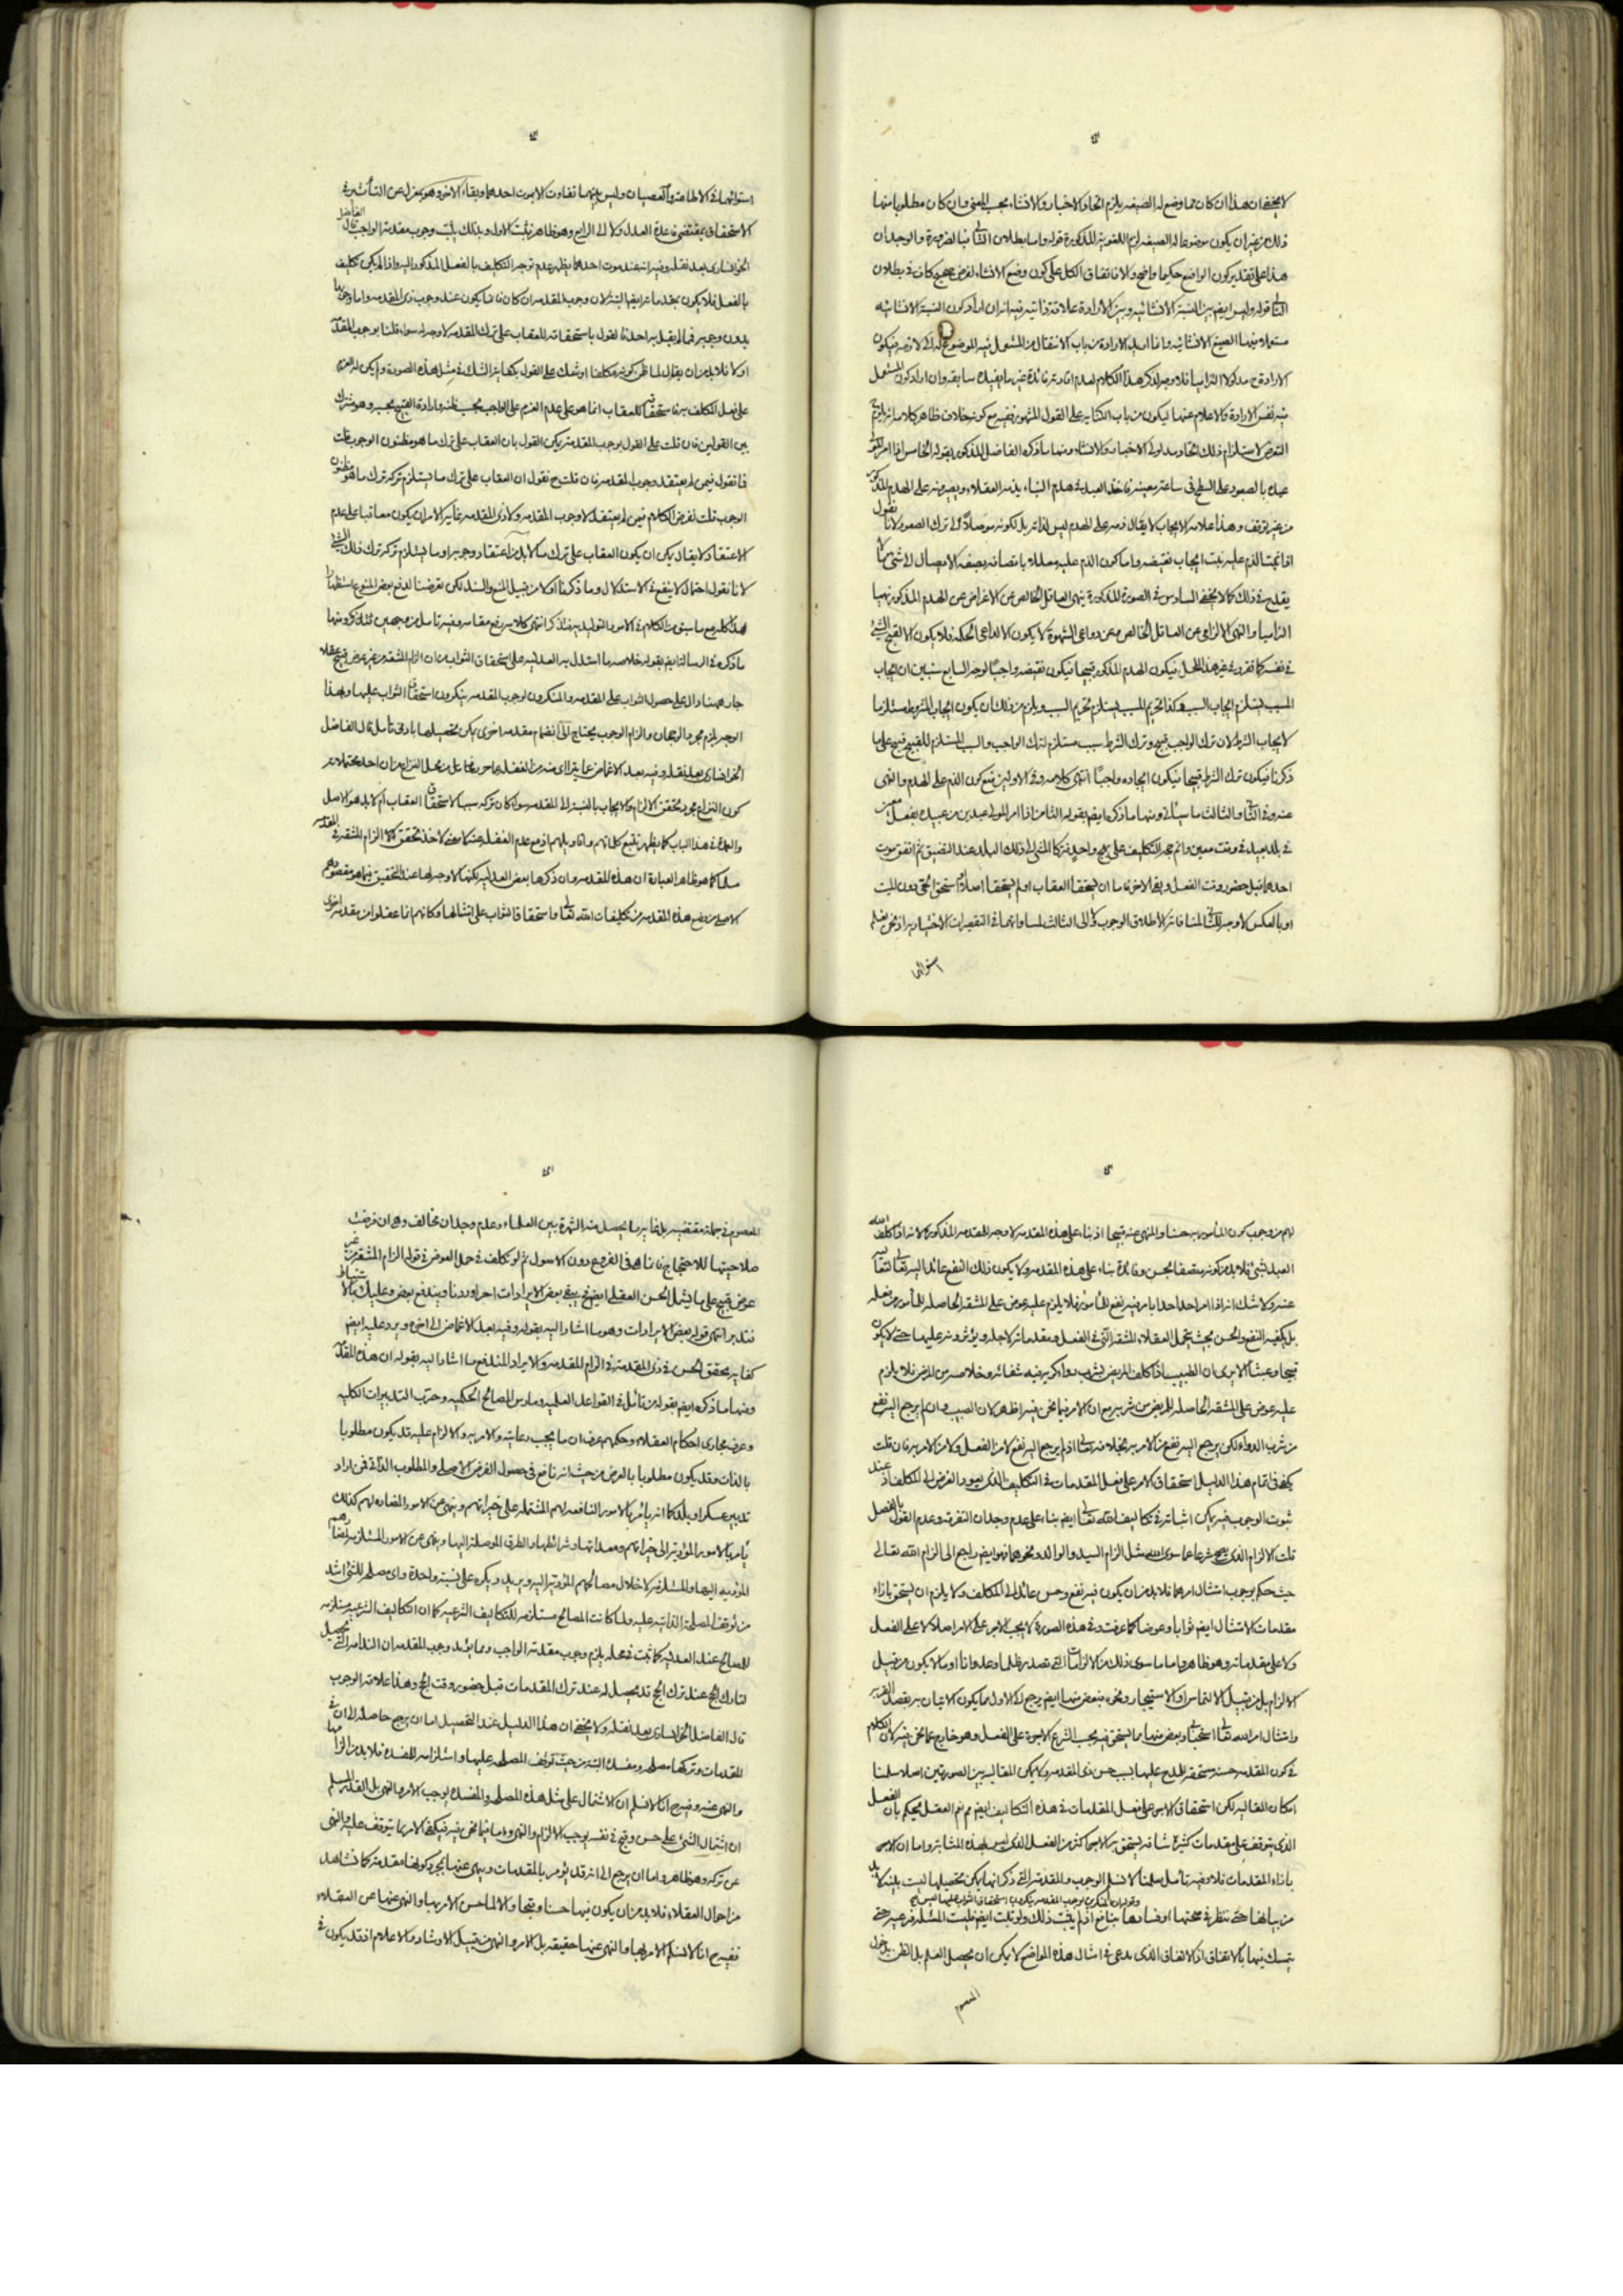 لا يخفى ان هذا ان كان مما وضع له الصيغه يلزم اتحاد الاخبار والانشاء بحسب المعنى وان كان مطلوبا منها
ذلك من غير ان يكون موضوعا له الصيغه لزم اللغوية المذكورة قوله واما بطلان التالى فبالضرورة والوجدان
هذا على تقدير كون الواضع حكيما واضح والا فاتفاق الكل على كون وضع الانشاء لغرض صحيح كاف فى بطلان
التالى قوله وليس ايضا بين النسبة الانشائيه وبين الارادة علاقة ذاتيه فيه انه ان اراد كون النسبة الانشائيه
مستعمله فيها الصيغ الانشائيه وانما الارادة من باب الانتقال من المستعمل فيه الموضوع له الى لازمه فيكون
الارادة مدلولا التزاميا فلا وجه لذكر هذا الكلام لعدم افادته فائدة غير ما يفيده سابقه وان اراد كون المستعمل
فيه نفس الارادة والاعلام عنها ليكون من باب الكنايه على القول المشهور ففيه مع كونه خلاف ظاهر كلامه انه
التعرض لاستلزام ذلك اتحاد مدلولى الاخبار والانشاء ومنها ما ذكره الفاضل المذكور بقوله الخامس اذا امر المولى
عبده بالصعود على السطح فى ساعة معينه فاخذ العبد فى هدم البناء يذمه العقلاء على الهدم المذكور
من غير توقف وهذا علامه الايجاب لا يقال ذمه على الهدم ليس لذاته بل لكونه موصلا الى ترك الصعود لانا نقول
اذا ثبت الذم عليه ثبت ايجاب نقيضه واما كون الذم عليه معللا باتصافه بصفه الايصال الى شئ
يقدح فى ذلك كما لا يخفى السادس فى الصورة المذكورة ينهى العاقل الخالص عن الاغراض عن الهدم المذكور نهيا
الزاميا والنهى الالزامى عن العاقل الخالص عن دواعى الشهوة لا يكون الا لداعى الحكمه فلا يكون الا لقبح الشئ
فى نفسه كما تقرر فى غير هذا المحل فيكون الهدم المذكور قبيحا فيكون نقيضه واجبا لوجه السابع سنبين ان ايجاب
المسبب يستلزم ايجاب السبب هكذا تحريم المسبب يستلزم تحريم السبب ويلزم من ذلك ان يكون ايجاب المشروط مستلزما
لايجاب الشرط لان ترك الواجب قبيح وترك الشرط سبب مستلزم لترك الواجب والسبب المستلزم للقبيح قبيح على ما
ذكرنا فيكون ترك الشرط قبيحا فيكون ايجاده واجبا انتهى كلامه وفى الاولين منع كون الذم على الهدم والنهى
عنه وفى الثانى والثالث ما سياتى ومنها ما ذكره ايضا بقوله الثامن اذا امر المولى عبدين من عبيده بفعل معين
فى بلد بعيد فى وقت معين واتم حجه التكليف على نهج واحد فتركا المشى الى ذلك البلد عند التضيق ثم اتفق موت
احدهما قبل حضور وقت الفعل وبقى الاخر فاما ان يستحقا العقاب او لم يستحقا اصلا او استحق الحى دون الميت
او بالعكس لا وجه للثانى لمنافاته لاطلاق الوجوب ولا الى الثالث لمساواتهما فى التقصيرات الاختياريه اذ فرض
استوائهما
استوائهما فى الاطاعة والعصيان وليس بينهما تفاوت الا بموت احدهما وبقاء الاخر وهو بمعزل عن التأثير فى
الاستحقاق بمقتضى قاعدة العدل ولا الى الرابع وهو ظاهر فثبت الاول وبذلك يثبت وجوب مقدمة الواجب قال الفاضل
الخوانسارى بعد نقله وفيه انه عند موت احدهما يظهر عدم توجه التكليف بالفعل المذكور اليه واذا لم يكن تكليف
بالفعل فلا يكون بمقدماته ايضا البته لان وجوب المقدمه ان كان فانما يكون عند وجوب ذى المقدمه واما وجوبها
بدون وجوبه فمما لم يقل به احد فالقول باستحقاقه للعقاب على ترك المقدمه لا وجه له سواء قلنا بوجوب المقدمة
او لا فلا بد من ان يقال لما ظن كونه مكلفا او شك على القول بكفاية الشك فى مثل هذه الصورة ولم يكن له عزم
على فعل المكلف به فاستحقاق العقاب انما هو على عدم العزم على الواجب بحسب ظنه وارادة القبيح بحسبه وهو مشترك
بين القولين فان قلت على القول بوجوب المقدمه يمكن القول بان العقاب على ترك ما هو مظنون الوجوب قلت
فما تقول فيمن لم يعتقد وجوب المقدمه فان قلت ح نقول ان العقاب على ترك ما يستلزم تركه ترك ما هو مظنون
الوجوب قلت نفرض الكلام فيمن لم يعتقد لا وجوب المقدمه ولا ذى المقدمه غاية الامر ان يكون معاقبا على عدم
الاعتقاد لا يقال يمكن ان يكون العقاب على ترك ما لا بد من اعتقاد وجوبه او ما يستلزم تركه ترك ذلك الشئ
لانا نقول احتمال لا ينفع فى الاستدلال وما ذكرنا اولا من قبيل المنع والسند لكن تعرضنا لدفع بعض المنوع استظهارا
هذا كله مع ما سبق من الكلام فى الامور التوليديه فتذكر انتهى كلامه رفع مقامه وفيه تامل من وجهين فتذكر ومنها
ما ذكره فى الرساله ايضا بقوله خلاصه ما استدل به العدليه على استحقاق الثواب من ان الزام المشقه من غير عوض قبيح عقلا
جار ههنا دال على حصول الثواب على المقدمه والمنكرون لوجوب المقدمه ينكرون استحقاق الثواب عليها وبهذا
الوجه يلزم مجرد الرجحان والزام الوجوب يحتاج الى انضمام مقدمه اخرى يمكن تحصيلها بادنى تأمل قال الفاضل
الخوانسارى بعد نقله وفيه بعد الاغماض عما يترااى منه من الغفله عما حرر سابقا من محل النزاع من ان احد محتملاته
كون النزاع مجرد تحقق الالزام والايجاب بالنسبة الى المقدمه سواء كان تركه سببا لاستحقاق العقاب ام لا بل هو الاصل
والعمدة فى هذا الباب كما يظهر بتتبع كلماتهم واقاويلهم اذ مع عدم الغفله عنه لا معنى لاخذ تحقق الزام المشقه فى المقدمه
مسلما كما هو ظاهر العبارة ان هذه المقدمه وان ذكرها بعض العدليه لكنها لا وجه لها عند التحقيق فيما هو مقصودهم
الاصلى من وضع هذه المقدمه من تكليفات الله تعالى واستحقاق الثواب على امتثالها وكانهم انما غفلوا من مقدمه اخرى
لهم من وجوب كون المأمور به حسنا والمنهى عنه قبيحا اذ بناء على هذه المقدمه لا وجه للمقدمه المذكورة لانه اذا كلف الله
العبد بشئ فلا بد من كونه متصفا بالحسن وفائدة بناء على هذه المقدمه ولا يكون ذلك النفع عائدا اليه تعالى لتعاليه
عنه ولا شك انه اذا امر احد احدا بامر فيه نفع للمأمور فلا يلزم عليه عوض على المشقه الحاصله للمأمور من فعله
بل يكفيه النفع والحسن بحيث يتحمل العقلاء المشقه التى فى الفعل ومقدماته لاجله ويؤثرونه عليها حتى لا يكون
قبيحا وعبثا الا يرى ان الطبيب اذا كلف المريض بشرب دواء كريه فيه شفائه وخلاصه من المرض فلا يلزم
عليه عوض على المشقه الحاصله للمريض من شربه مع ان الامر فيما نحن فيه اظهر لان الطبيب وان لم يرجع اليه نفع
من شرب الدواء لكن يرجع اليه نفع من الامر به بخلافه تعالى اذ لم يرجع اليه نفع لا من الفعل ولا من الامر به فان قلت
يكفى فى اتمام هذا الدليل استحقاق الاجر على فعل المقدمات فى التكليف الذى يعود الغرض الى المكلف اذ عند
ثبوت الوجوب فيه يمكن اثباته فى تكاليف الله تعالى ايضا بناء على عدم وجدان التفرقة وعدم القول بالفصل
قلت الالزام الذى يصح شرعا مما سوى الله مثل الزام السيد والوالد ونحوهما فهو ايضا راجع الى الزام الله تعالى
حيث حكم بوجوب امتثال امرهما فلا بد من ان يكون فيه نفع وحسن عائد الى المكلف ولا يلزم ان يستحق بازاء
مقدمات الامتثال ايضا ثوابا وعوضا كما عرفت وفى هذه الصورة لا يجب الاجر على الامر اصلا لا على الفعل
ولا على مقدماته وهو ظاهر واما ما سوى ذلك من الالزامات التى تصدر ظلما وعدوانا او ما لا يكون من قبيل
الالزام بل من قبيل الالتماس او الاستيجار ونحوه فبعض منها ايضا يرجع الى الاول مما يكون الاتيان به بقصد القربه
وامتثال امر الله تعالى استحبابا وبعض منها مما يستحق فيه بحسب الشرع الاجرة على الفعل وهو خارج عما نحن فيه لان الكلام
فى كون المقدمه حسنه مستحقه للمدح عليها بسبب حسن ذى المقدمه ولا يمكن المقايسه بين الصورتين اصلا سلمنا
امكان المقايسه لكن استحقاق الاجر على فعل المقدمات فى هذه التكاليف ايضا مم نعم العقل يحكم بان الفعل
الذى يتوقف على مقدمات كثيرة شاقه يستحق به الاجر اكثر من الفعل الذى ليس بهذه المثابه واما ان الاجر
بازاء المقدمات فلا وفيه تأمل سلمنا لا نسلم الوجوب والمقدمة التى ذكر انها يمكن تحصيلها ليست بينه لا بد
وقوله ان المنكرين لوجوب المقدمه ينكرون استحقاق الثواب عليها ليس بحجة
من بيانها حتى ننظر فى صحتها او فسادها بنافع اذ لم يثبت ذلك ولو ثبت ايضا فليست المسئله شرعيه حتى
يتمسك فيها بالاتفاق اذ الاتفاق الذى يدعى فى امثال هذه المواضع لا يمكن ان يحصل العلم بل الظن بدخول
المعصوم
المعصوم فى جمله مقتضيه بل غاية ما يحصل منه الشهرة بين العلماء وعدم وجدان مخالف وهى ان فرضت
صلاحيتها للاحتجاج فانما هى فى الفروع دون الاصول ثم لو تكلف فى حمل العوض فى قوله الزام المشقة من غير
عوض قبيح على ما يشمل الحسن العقلى ايضا فح يبقى بعض الايرادات اخر اوردنا ويندفع بعض وعليك بالاستنباط
فتدبر انتهى قوله بعض الايرادات وهو ما اشار اليه بقوله وفيه بعد الاغماض الى اخره ويرد عليه ايضا
كفايه تحقق الحسن فى ذى المقدمة فى الزام المقدمه والايراد المندفع ما اشار اليه بقوله ان هذه المقدمة
ومنها ما ذكره ايضا بقوله من تأمل فى القواعد العلميه ومارس المصالح الحكميه وجرب التدبيرات الكليه
وعرف مجارى احكام العقلاء وحكمهم عرف ان ما يجب رعايته والامر به والالزام عليه قد يكون مطلوبا
بالذات وقد يكون مطلوبا بالعرض من حيث انه نافع فى حصول الغرض الاصلى والمطلوب الذاتى فمن اراد
تدبير عسكر او بلد كما انه يأمر بالامور النافعه لهم المشتمله على خيراتهم وينهى عن الامور المضاره لهم كذلك
يأمر بالامور المؤديه الى خيراتهم ومعداتها وشرائطها والطرق الموصله اليها وينهى عن الامور المستلزمه لمضارهم
المؤديه اليها والمستلزمه لاخلال مصالحهم المؤديه اليه ويريد ويكره على نسبة واحدة واى مصلحة للشئ اشد
من توقف المصلحة الذاتيه عليه ولما كانت المصالح مستلزمه للتكاليف الشرعيه كما ان التكاليف الشرعيه مستلزمه
للمصالح عند العدليه كما ثبت فى محله يلزم وجوب مقدمة الواجب ومما يؤيد وجوب المقدمه ان الندامه التى تحصيل
لتارك الحج عند ترك الحج قد يحصل له عند ترك المقدمات قبل حضور وقت الحج وهذا علامة الوجوب
قال الفاضل الخوانسارى بعد نقله ولا يخفى ان هذا الدليل عند التحصيل اما ان يرجع حاصله الى ان فى
المقدمات وتركها مصلحه ومفسدة البته من حيث توقف المصلحه عليها واستلزامه للمفسده فلا بد من الزامها
والنهى عنه وفيه ح انا لا نسلم ان الاشتمال على مثل هذه المصلحه والمفسده يوجب الامر والنهى بل القدر المسلم
ان اشتمال الشئ على حسن وقبح فى نفسه يوجب الالزام والنهى واما فيما نحن فيه فيكفى الامر بما يتوقف عليه والنهى
عن تركه وهو ظاهر واما ان يرجع الى انه قد يؤمر بالمقدمات وينهى عنها بمجرد كونها مقدمه كما نشاهد
من احوال العقلاء فلا بد من ان يكون فيها حسنا وقبحا والا لما حسن الامر بها والنهى عنها عن العقلاء
ففيه ح انا لا نسلم الامر بها والنهى عنها حقيقه بل الامر والنهى من قبيل الارشاد والاعلام اذ قد يكون فى